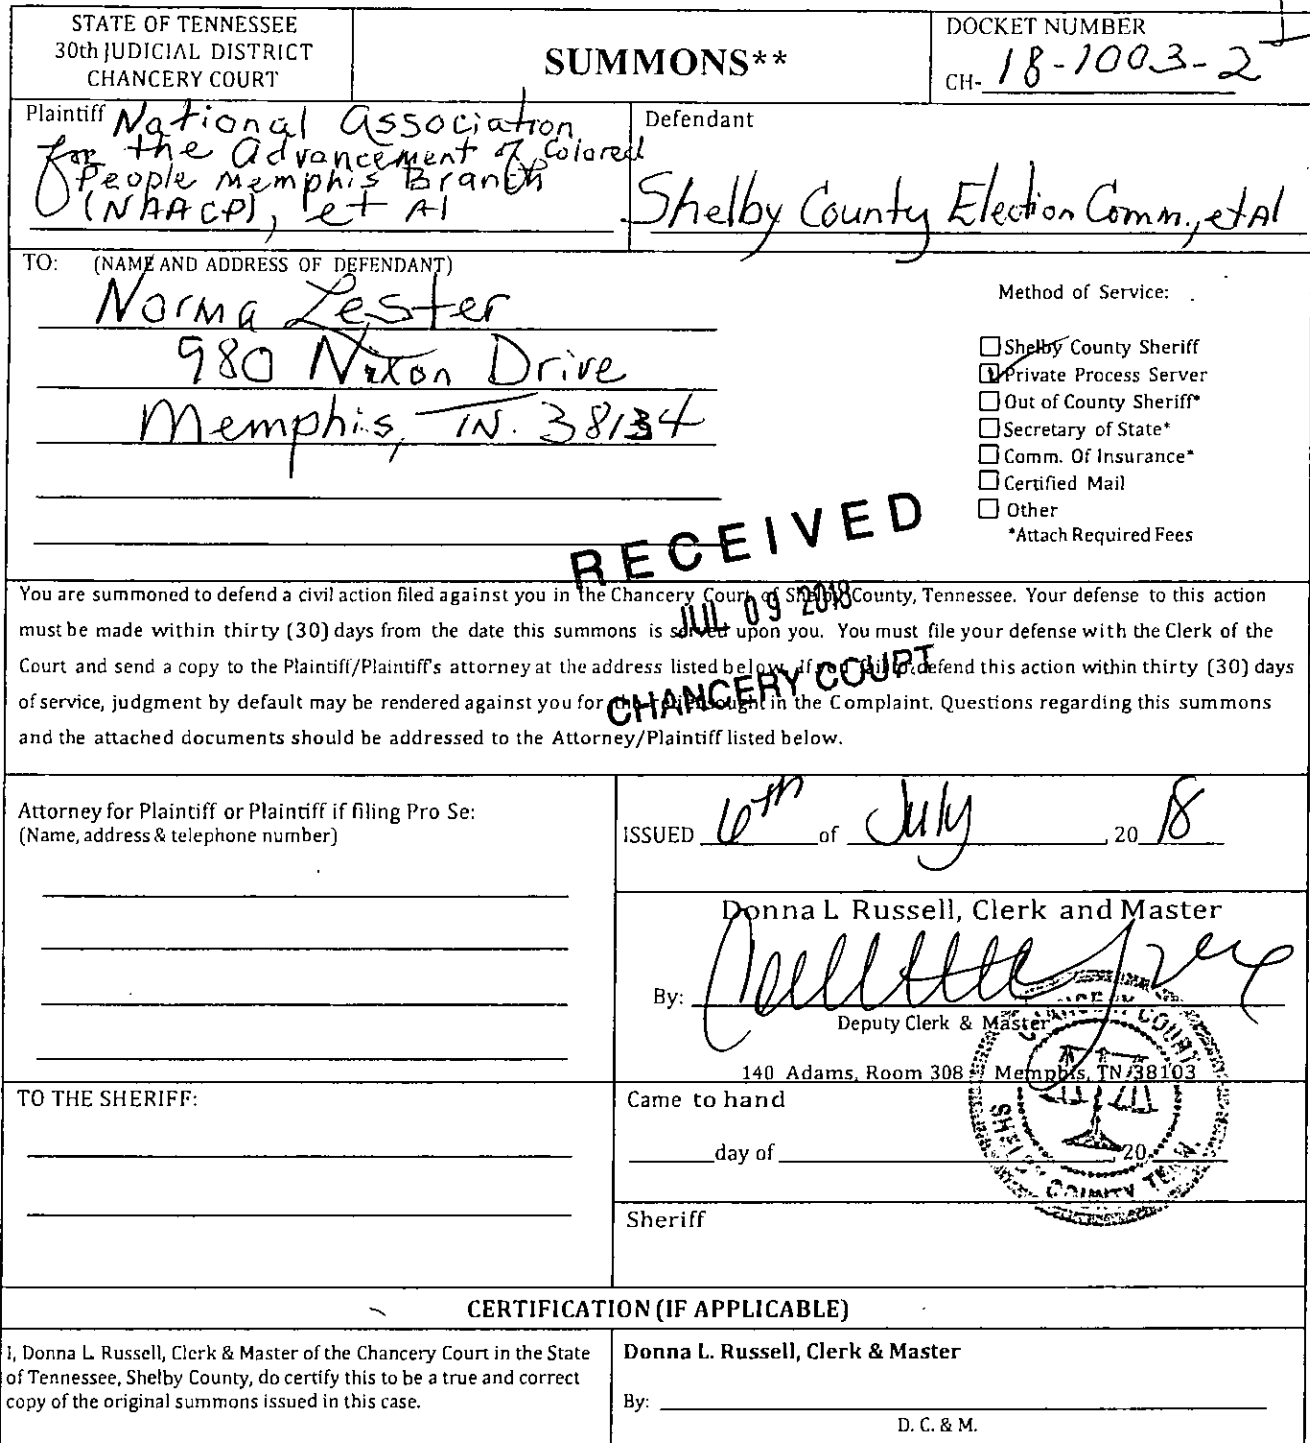 STATE OF TENNESSEE
30th JUDICIAL DISTRICT
CHANCERY COURT
SUMMONS**
DOCKET NUMBER
CH- 18-1003-2
Plaintiff National Association
for the Advancement of Colored
People Memphis Branch
(NAACP), et Al
Defendant
Shelby County Election Comm., et Al
TO: (NAME AND ADDRESS OF DEFENDANT)
Norma Lester
980 Nixon Drive
Memphis, TN. 38134
Method of Service:
Shelby County Sheriff
Private Process Server
Out of County Sheriff*
Secretary of State*
Comm. Of Insurance*
Certified Mail
Other
*Attach Required Fees
RECEIVED
JUL 09 2018
CHANCERY COURT
You are summoned to defend a civil action filed against you in the Chancery Court of Shelby County, Tennessee. Your defense to this action
must be made within thirty (30) days from the date this summons is served upon you. You must file your defense with the Clerk of the
Court and send a copy to the Plaintiff/Plaintiff's attorney at the address listed below. If you fail to defend this action within thirty (30) days
of service, judgment by default may be rendered against you for the relief sought in the Complaint. Questions regarding this summons
and the attached documents should be addressed to the Attorney/Plaintiff listed below.
Attorney for Plaintiff or Plaintiff if filing Pro Se:
(Name, address & telephone number)
ISSUED 6th of July, 20 18
Donna L Russell, Clerk and Master
By:
Deputy Clerk & Master
140 Adams, Room 308 Memphis, TN 38103
CHANCERY COURT
SHELBY COUNTY TENN.
TO THE SHERIFF:
Came to hand
day of , 20
Sheriff
CERTIFICATION (IF APPLICABLE)
I, Donna L. Russell, Clerk & Master of the Chancery Court in the State
of Tennessee, Shelby County, do certify this to be a true and correct
copy of the original summons issued in this case.
Donna L. Russell, Clerk & Master
By:
D. C. & M.